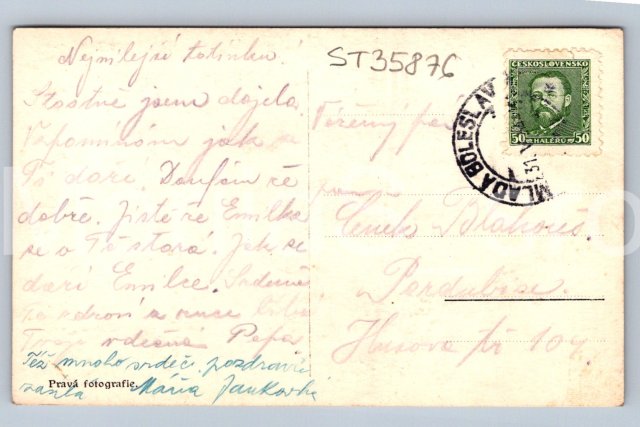 Nejmilejší tatínku!
Šťastně jsem dojela
Vzpomínám jak
Ti daří. Doufám že
dobře. Jistě že Emilka
se o Tě stará. Jak se
daří Emilce. Srdečně
Tě zdraví a ruce líbá
Tvoje vděčná Pepa
Též mnoho srdeč. pozdravů
zasílá Mária Jankovská
Pravá fotografie.
ST35876
ČESKOSLOVENSKO
50 HALÉŘŮ 50
MLADÁ BOLESLAV 1
Vážený pan
Čeněk Blahouš
Pardubice.
Husova tř 104